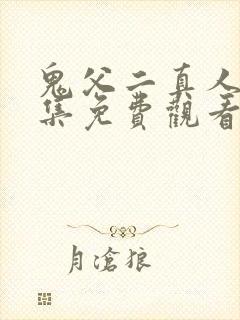 鬼父二真人
集免費觀看
月滄狼